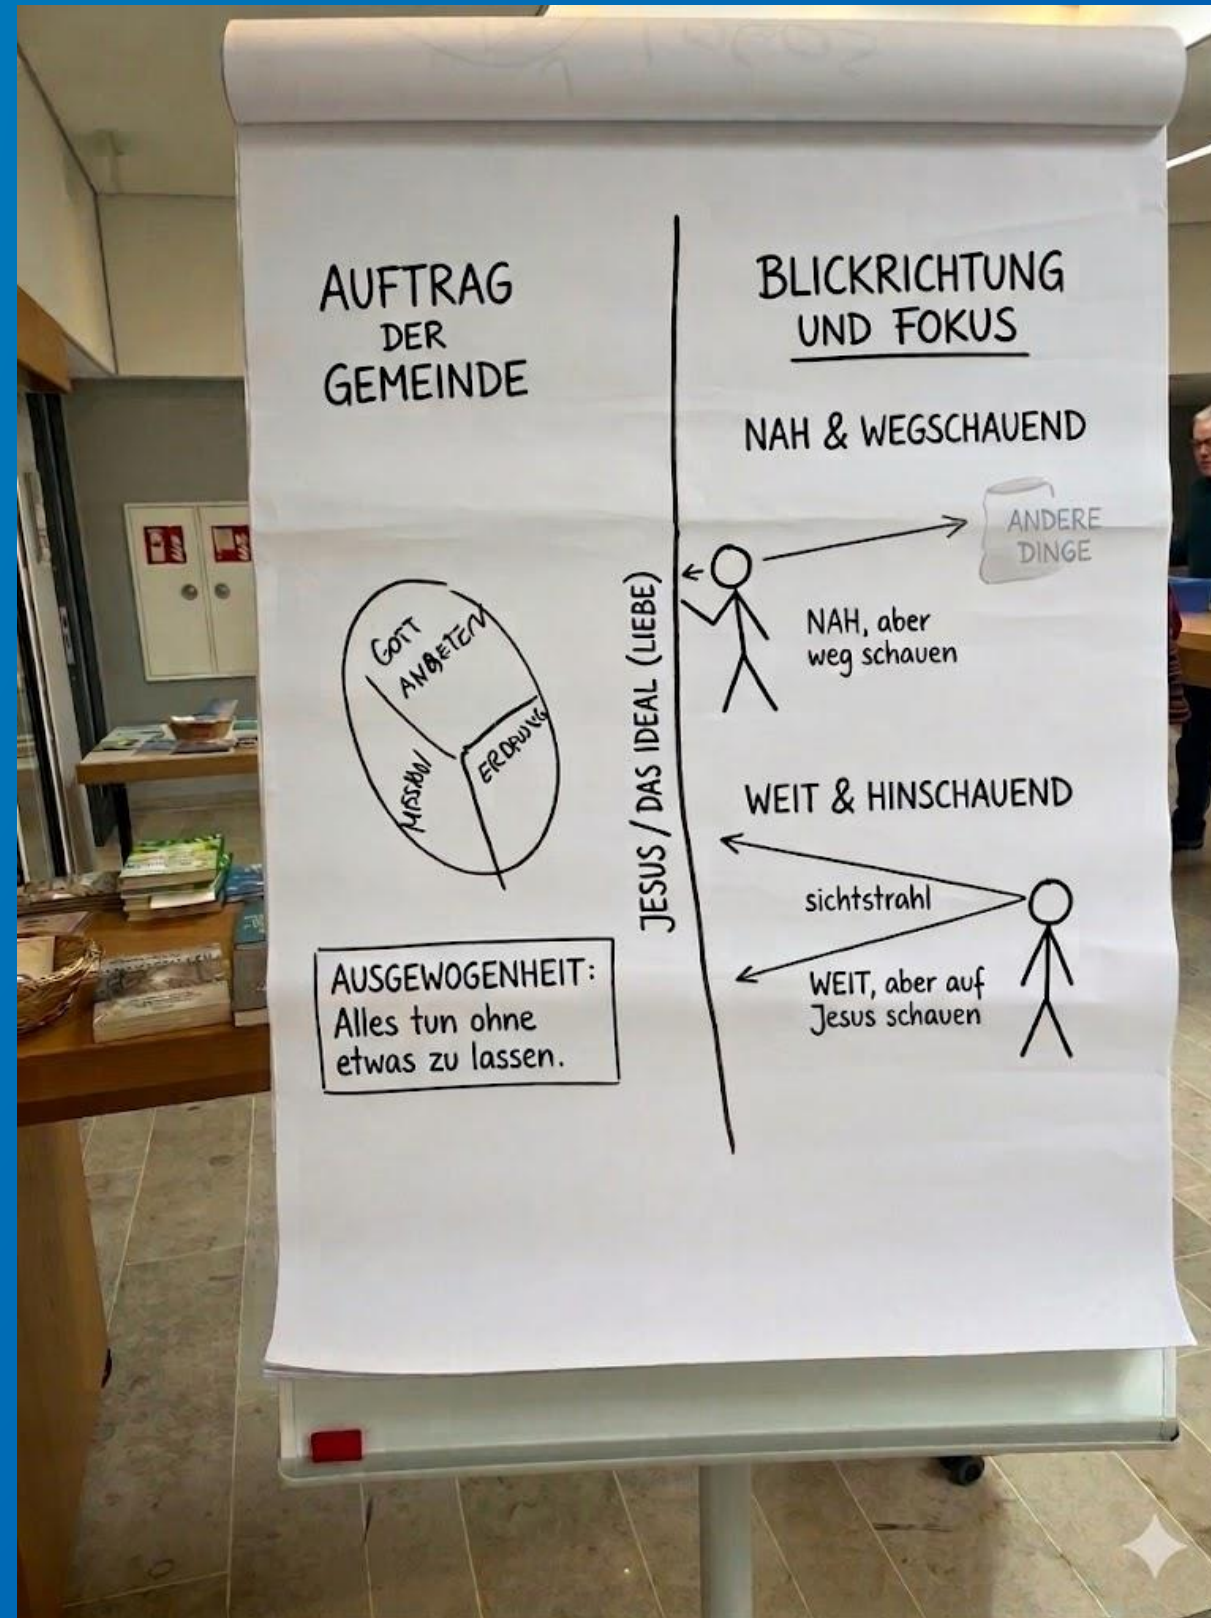 AUFTRAG
DER
GEMEINDE
GOTT
ANBETEN
MISSION
AUSGEWOGENHEIT:
Alles tun ohne
etwas zu lassen.
JESUS / DAS IDEAL (LIEBE)
BLICKRICHTUNG
UND FOKUS
NAH & WEGSCHAUEND
ANDERE
DINGE
NAH, aber
weg schauen
WEIT & HINSCHAUEND
sichtstrahl
WEIT, aber auf
Jesus schauen